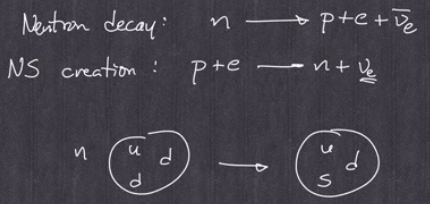 Neutron decay: n → p+e+ν̄e
NS creation: p+e — n+νe
n u d d → u d s